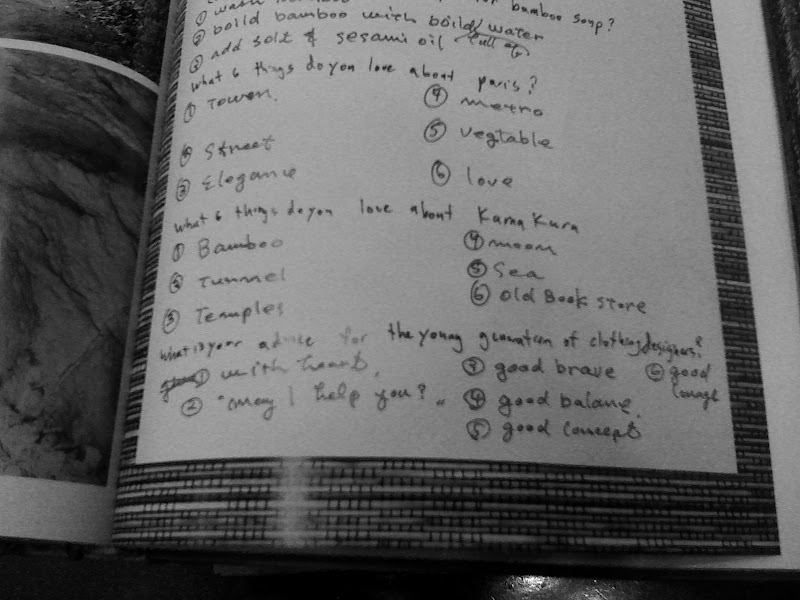 for bamboo soup?
① wash
② boild bamboo with boild water
③ add solt & sesami oil (full of)
What 6 things do you love about paris?
① Tower.
② Street
③ Elegance
④ metro
⑤ Vegtable
⑥ love
What 6 things do you love about Kama Kura
① Bamboo
② Tunnel
③ Temples
④ moon
⑤ Sea
⑥ Old Book store
What is your advice for the young generation of clothing designers?
① with heart.
② "may I help you?"
③ good brave
④ good balance
⑤ good concept
⑥ good